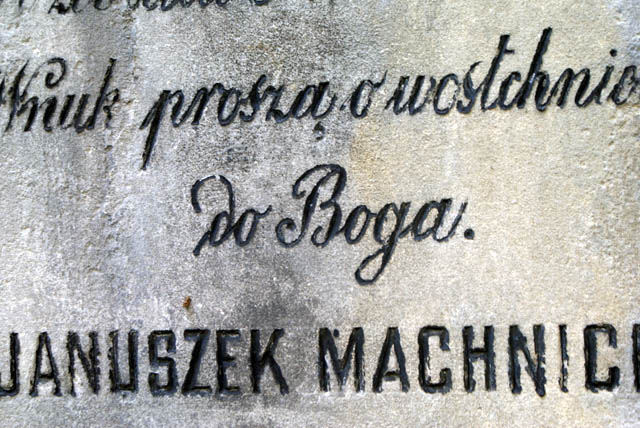 Wnuk proszą o wostchnie
do Boga.
JANUSZEK MACHNIC